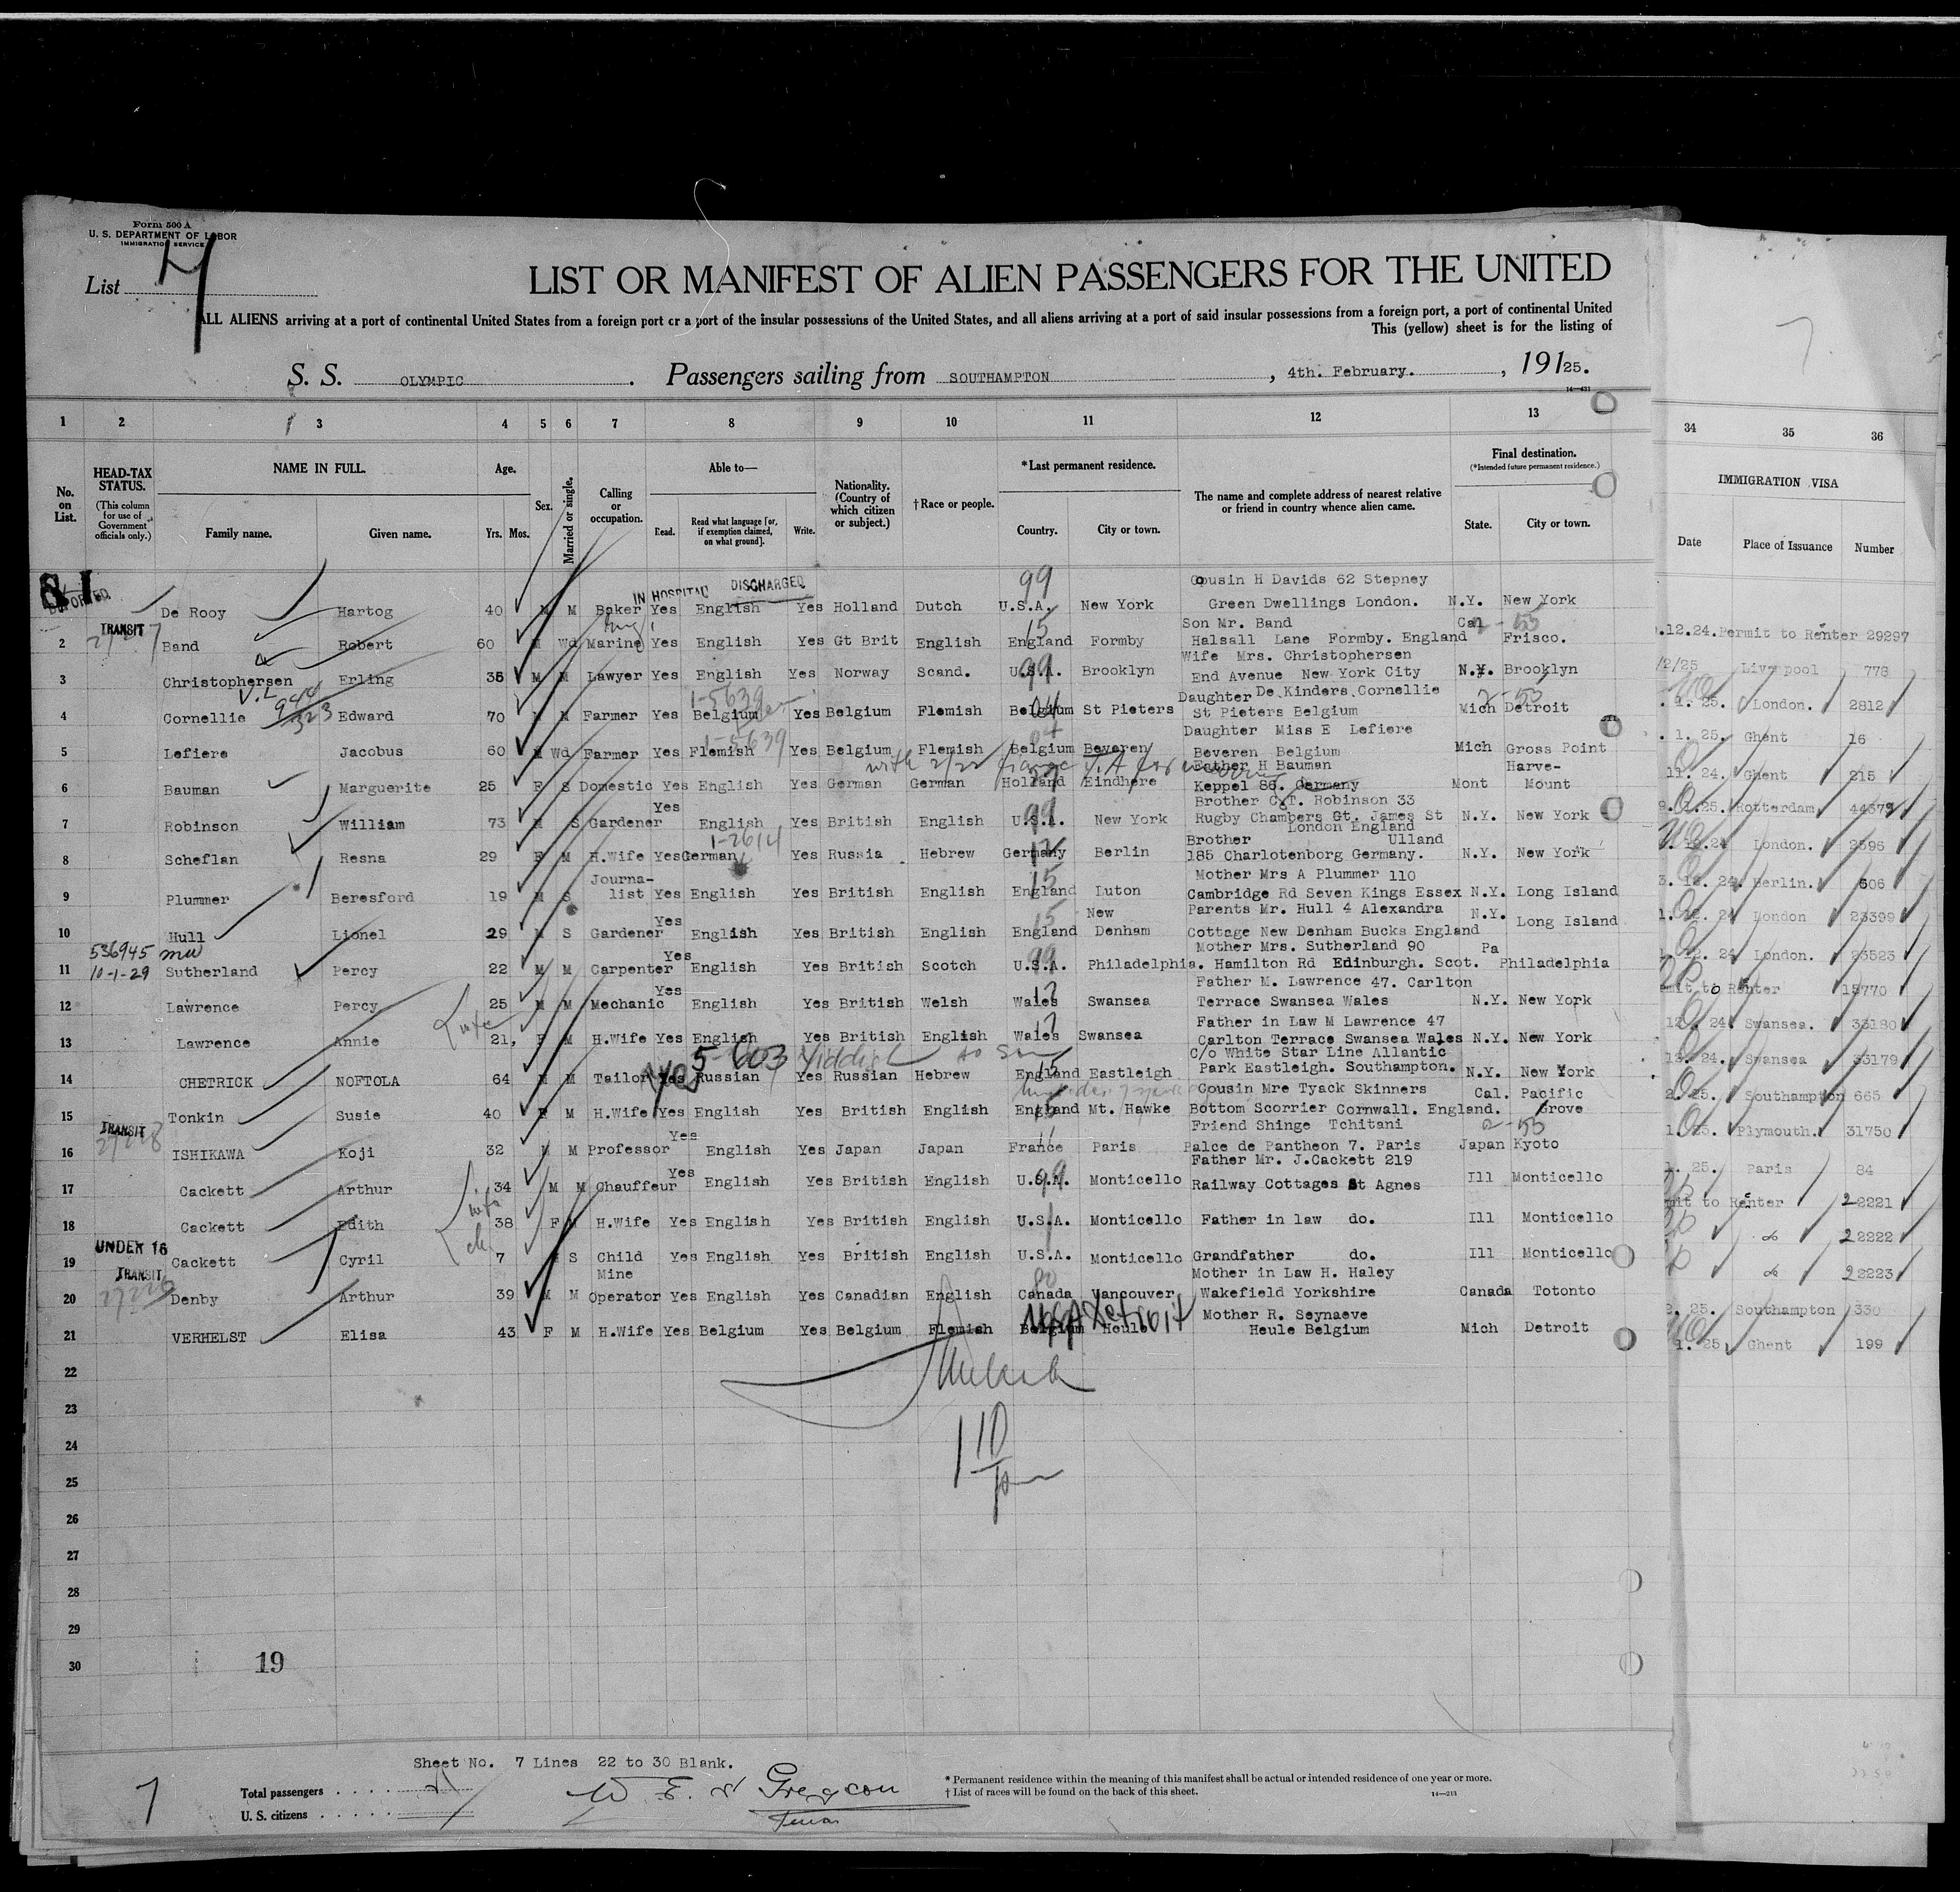 Form 500 A
U. S. DEPARTMENT OF LABOR
IMMIGRATION SERVICE
List 7
LIST OR MANIFEST OF ALIEN PASSENGERS FOR THE UNITED
ALL ALIENS arriving at a port of continental United States from a foreign port or a port of the insular possessions of the United States, and all aliens arriving at a port of said insular possessions from a foreign port, a port of continental United
This (yellow) sheet is for the listing of
S. S. OLYMPIC. Passengers sailing from SOUTHAMPTON, 4th. February., 19125.
14—431
1 2 3 4 5 6 7 8 9 10 11 12 13 34 35 36
No. on List.
HEAD-TAX STATUS. (This column for use of Government officials only.)
NAME IN FULL. Family name. Given name.
Age. Yrs. Mos.
Sex.
Married or single.
Calling or occupation.
Able to— Read. Read what language [or, if exemption claimed, on what ground]. Write.
Nationality. (Country of which citizen or subject.)
†Race or people.
*Last permanent residence. Country. City or town.
The name and complete address of nearest relative or friend in country whence alien came.
Final destination. (*Intended future permanent residence.) State. City or town.
IMMIGRATION VISA Date Place of Issuance Number
IN HOSPITAL DISCHARGED
DEPORTED De Rooy Hartog 40 M M Baker Yes English Yes Holland Dutch U.S.A. 99 New York Cousin H Davids 62 Stepney Green Dwellings London. N.Y. New York
TRANSIT 2 Band Robert 60 M Wd Marine Eng. Yes English Yes Gt Brit English England 15 Formby Son Mr. Band Halsall Lane Formby. England Cal Frisco. .12.24. Permit to Renter 29297
3 Christophersen Erling 35 M M Lawyer Yes English Yes Norway Scand. U.S.A. 99 Brooklyn Wife Mrs. Christophersen End Avenue New York City N.Y. Brooklyn /2/25 Liverpool 778
4 Cornellie Edward 70 M M Farmer Yes Belgium 1-5639 Yes Belgium Flemish Belgium 04 St Pieters Daughter De Kinders Cornellie St Pieters Belgium Mich Detroit 1. 25. London. 2812
5 Lefiere Jacobus 60 M Wd Farmer Yes Flemish 1-5639 Yes Belgium Flemish Belgium 04 Beveren Daughter Miss E Lefiere Beveren Belgium Mich Gross Point 1. 25. Ghent 16
6 Bauman Marguerite 25 F S Domestic Yes English Yes German German Holland Eindhere Father H Bauman Keppel 86. Germany Mont Harve- Mount 11. 24. Ghent 215
7 Robinson William 73 M S Gardener Yes English Yes British English U.S.A. 99 New York Brother C.T. Robinson 33 Rugby Chambers Gt. James St London England N.Y. New York 9. 1.25. Rotterdam. 44379
8 Scheflan Resna 29 F M H.Wife Yes German 1-2614 Yes Russia Hebrew Germany 12 Berlin Brother Ulland 185 Charlotenborg Germany. N.Y. New York London. 2596
9 Plummer Beresford 19 M S Journa- list Yes English Yes British English England 15 Luton Mother Mrs A Plummer 110 Cambridge Rd Seven Kings Essex N.Y. Long Island 3. 12. 24. Berlin. 606
10 Hull Lionel 29 M S Gardener Yes English Yes British English England 15 New Denham Parents Mr. Hull 4 Alexandra Cottage New Denham Bucks England N.Y. Long Island 24 London 23399
536945 10-1-29 11 Sutherland Percy 22 M M Carpenter Yes English Yes British Scotch U.S.A. 99 Philadelphia. Mother Mrs. Sutherland 90 Hamilton Rd Edinburgh. Scot. Pa Philadelphia 24 London. 23523
12 Lawrence Percy 25 M M Mechanic Yes English Yes British Welsh Wales 17 Swansea Father M. Lawrence 47. Carlton Terrace Swansea Wales N.Y. New York mit to Renter 15770
13 Lawrence Annie 21, F M H.Wife Yes English Yes British English Wales 17 Swansea Father in Law M Lawrence 47 Carlton Terrace Swansea Wales N.Y. New York 24. Swansea. 33180
14 CHETRICK NOFTOLA 64 M M Tailor Yes Russian 5-603 Yiddish to Son Yes Russian Hebrew England 15 Eastleigh C/o White Star Line Allantic Park Eastleigh. Southampton. N.Y. New York 24. Swansea 33179
15 Tonkin Susie 40 F M H.Wife Yes English Yes British English England 15 Mt. Hawke Cousin Mre Tyack Skinners Bottom Scorrier Cornwall. England. Cal. Pacific Grove 2. 25. Southampton 665
TRANSIT 16 ISHIKAWA Koji 32 M M Professor Yes English Yes Japan Japan France 11 Paris Friend Shinge Tchitani Palce de Pantheon 7. Paris Japan Kyoto 25. Plymouth. 31750
17 Cackett Arthur 34 M M Chauffeur Yes English Yes British English U.S.A. 99 Monticello Father Mr. J.Cackett 219 Railway Cottages St Agnes Ill Monticello 25. Paris 84
18 Cackett Edith 38 F M H.Wife Yes English Yes British English U.S.A. Monticello Father in law do. Ill Monticello mit to Renter 22221
UNDER 16 19 Cackett Cyril 7 M S Child Yes English Yes British English U.S.A. Monticello Grandfather do. Ill Monticello 22222
TRANSIT 27226 20 Denby Arthur 39 M M Mine Operator Yes English Yes Canadian English Canada 80 Vancouver Mother in Law H. Haley Wakefield Yorkshire Canada Totonto 22223
2. 25. Southampton 330
21 VERHELST Elisa 43 F M H.Wife Yes Belgium Yes Belgium Flemish Belgium Heule Detroit Mother R. Seynaeve Heule Belgium Mich Detroit 1. 25. Ghent 199
22
23
24
25
26
27
28
29
30
19
Sheet No. 7 Lines 22 to 30 Blank.
7
Total passengers . . . . . 21
U. S. citizens . . . . .
* Permanent residence within the meaning of this manifest shall be actual or intended residence of one year or more.
† List of races will be found on the back of this sheet.
14—213